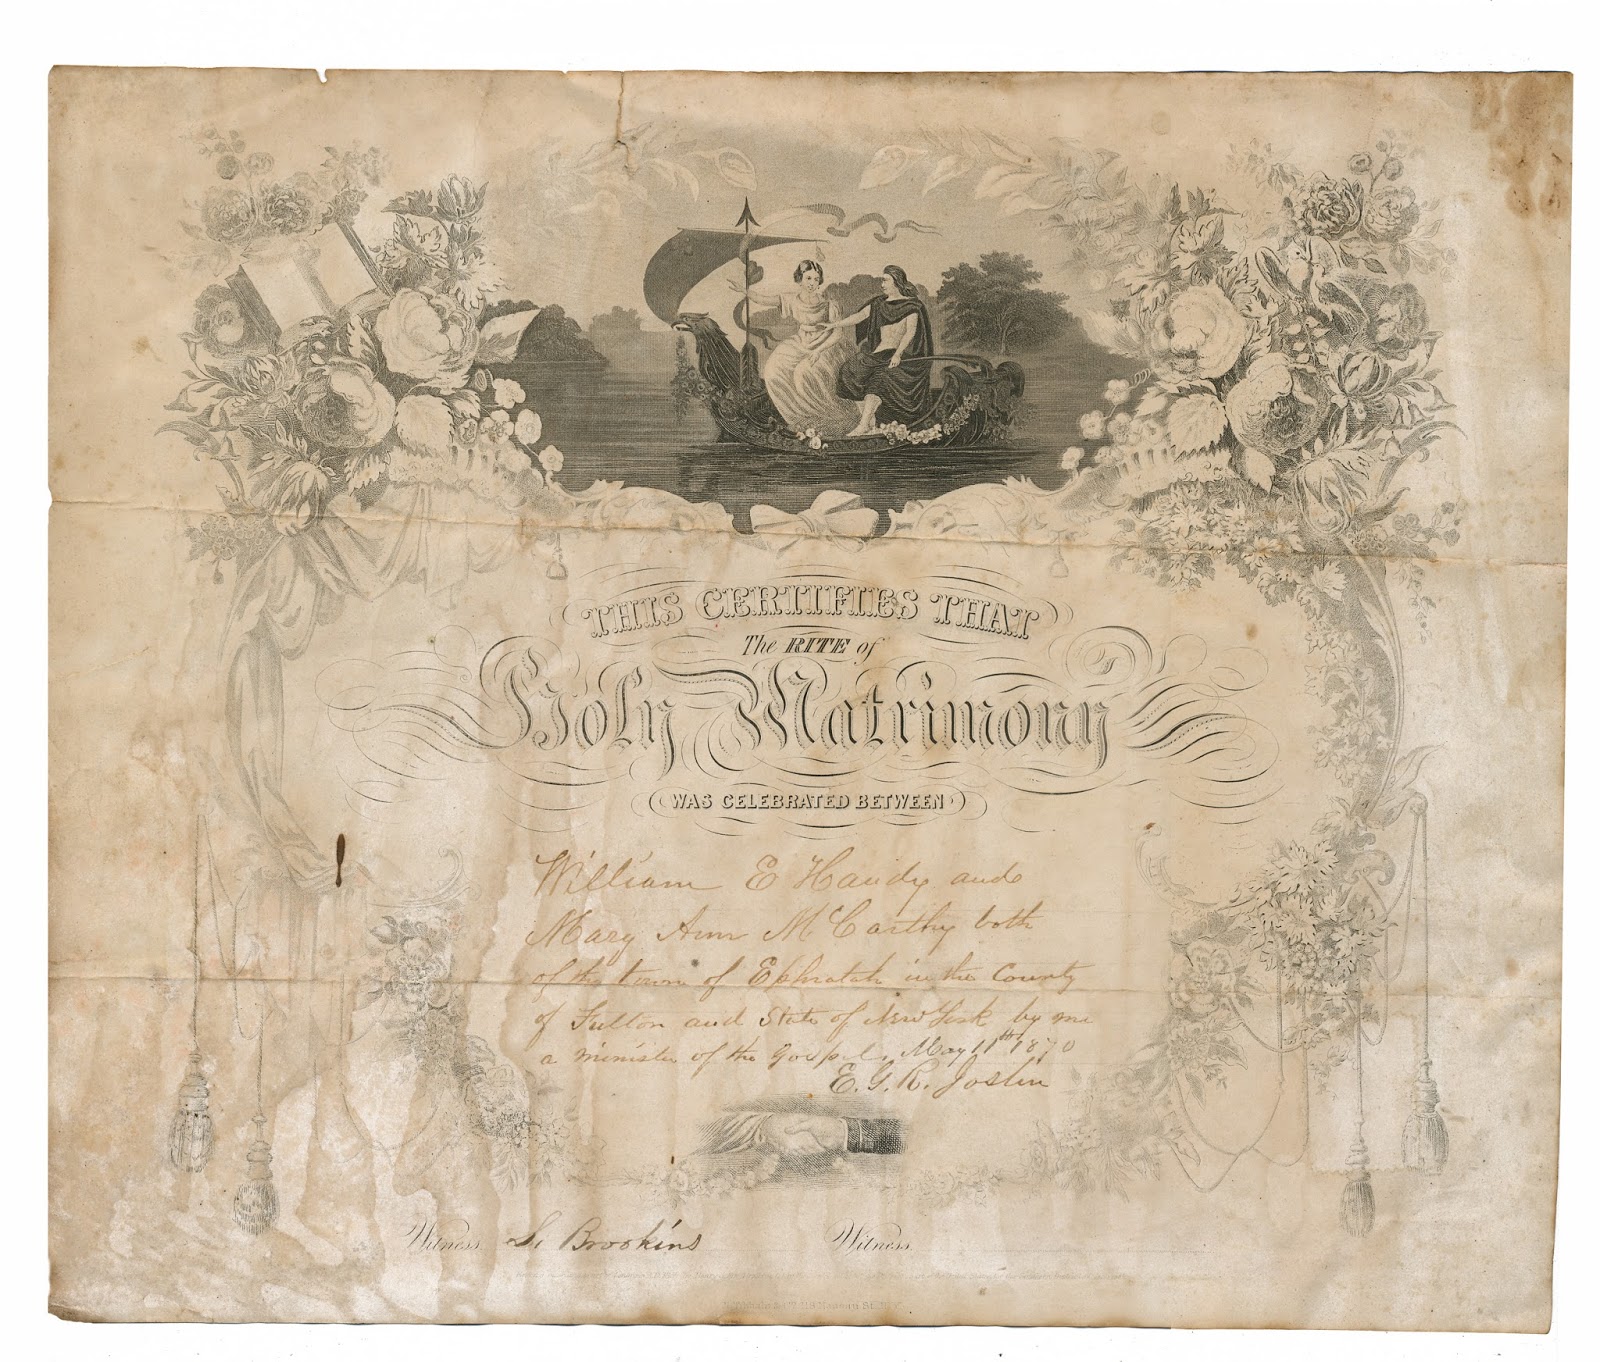 THIS CERTIFIES THAT
The RITE of
Holy Matrimony
WAS CELEBRATED BETWEEN
William E Handy and
Mary Ann McCarthy both
of the town of Ephratah in the County
of Fulton and State of New York by me
a minister of the Gospel, May 11th 1870
E. G. R. Joslin
Witness. S. Brookins Witness.
Nassau St. N.Y.